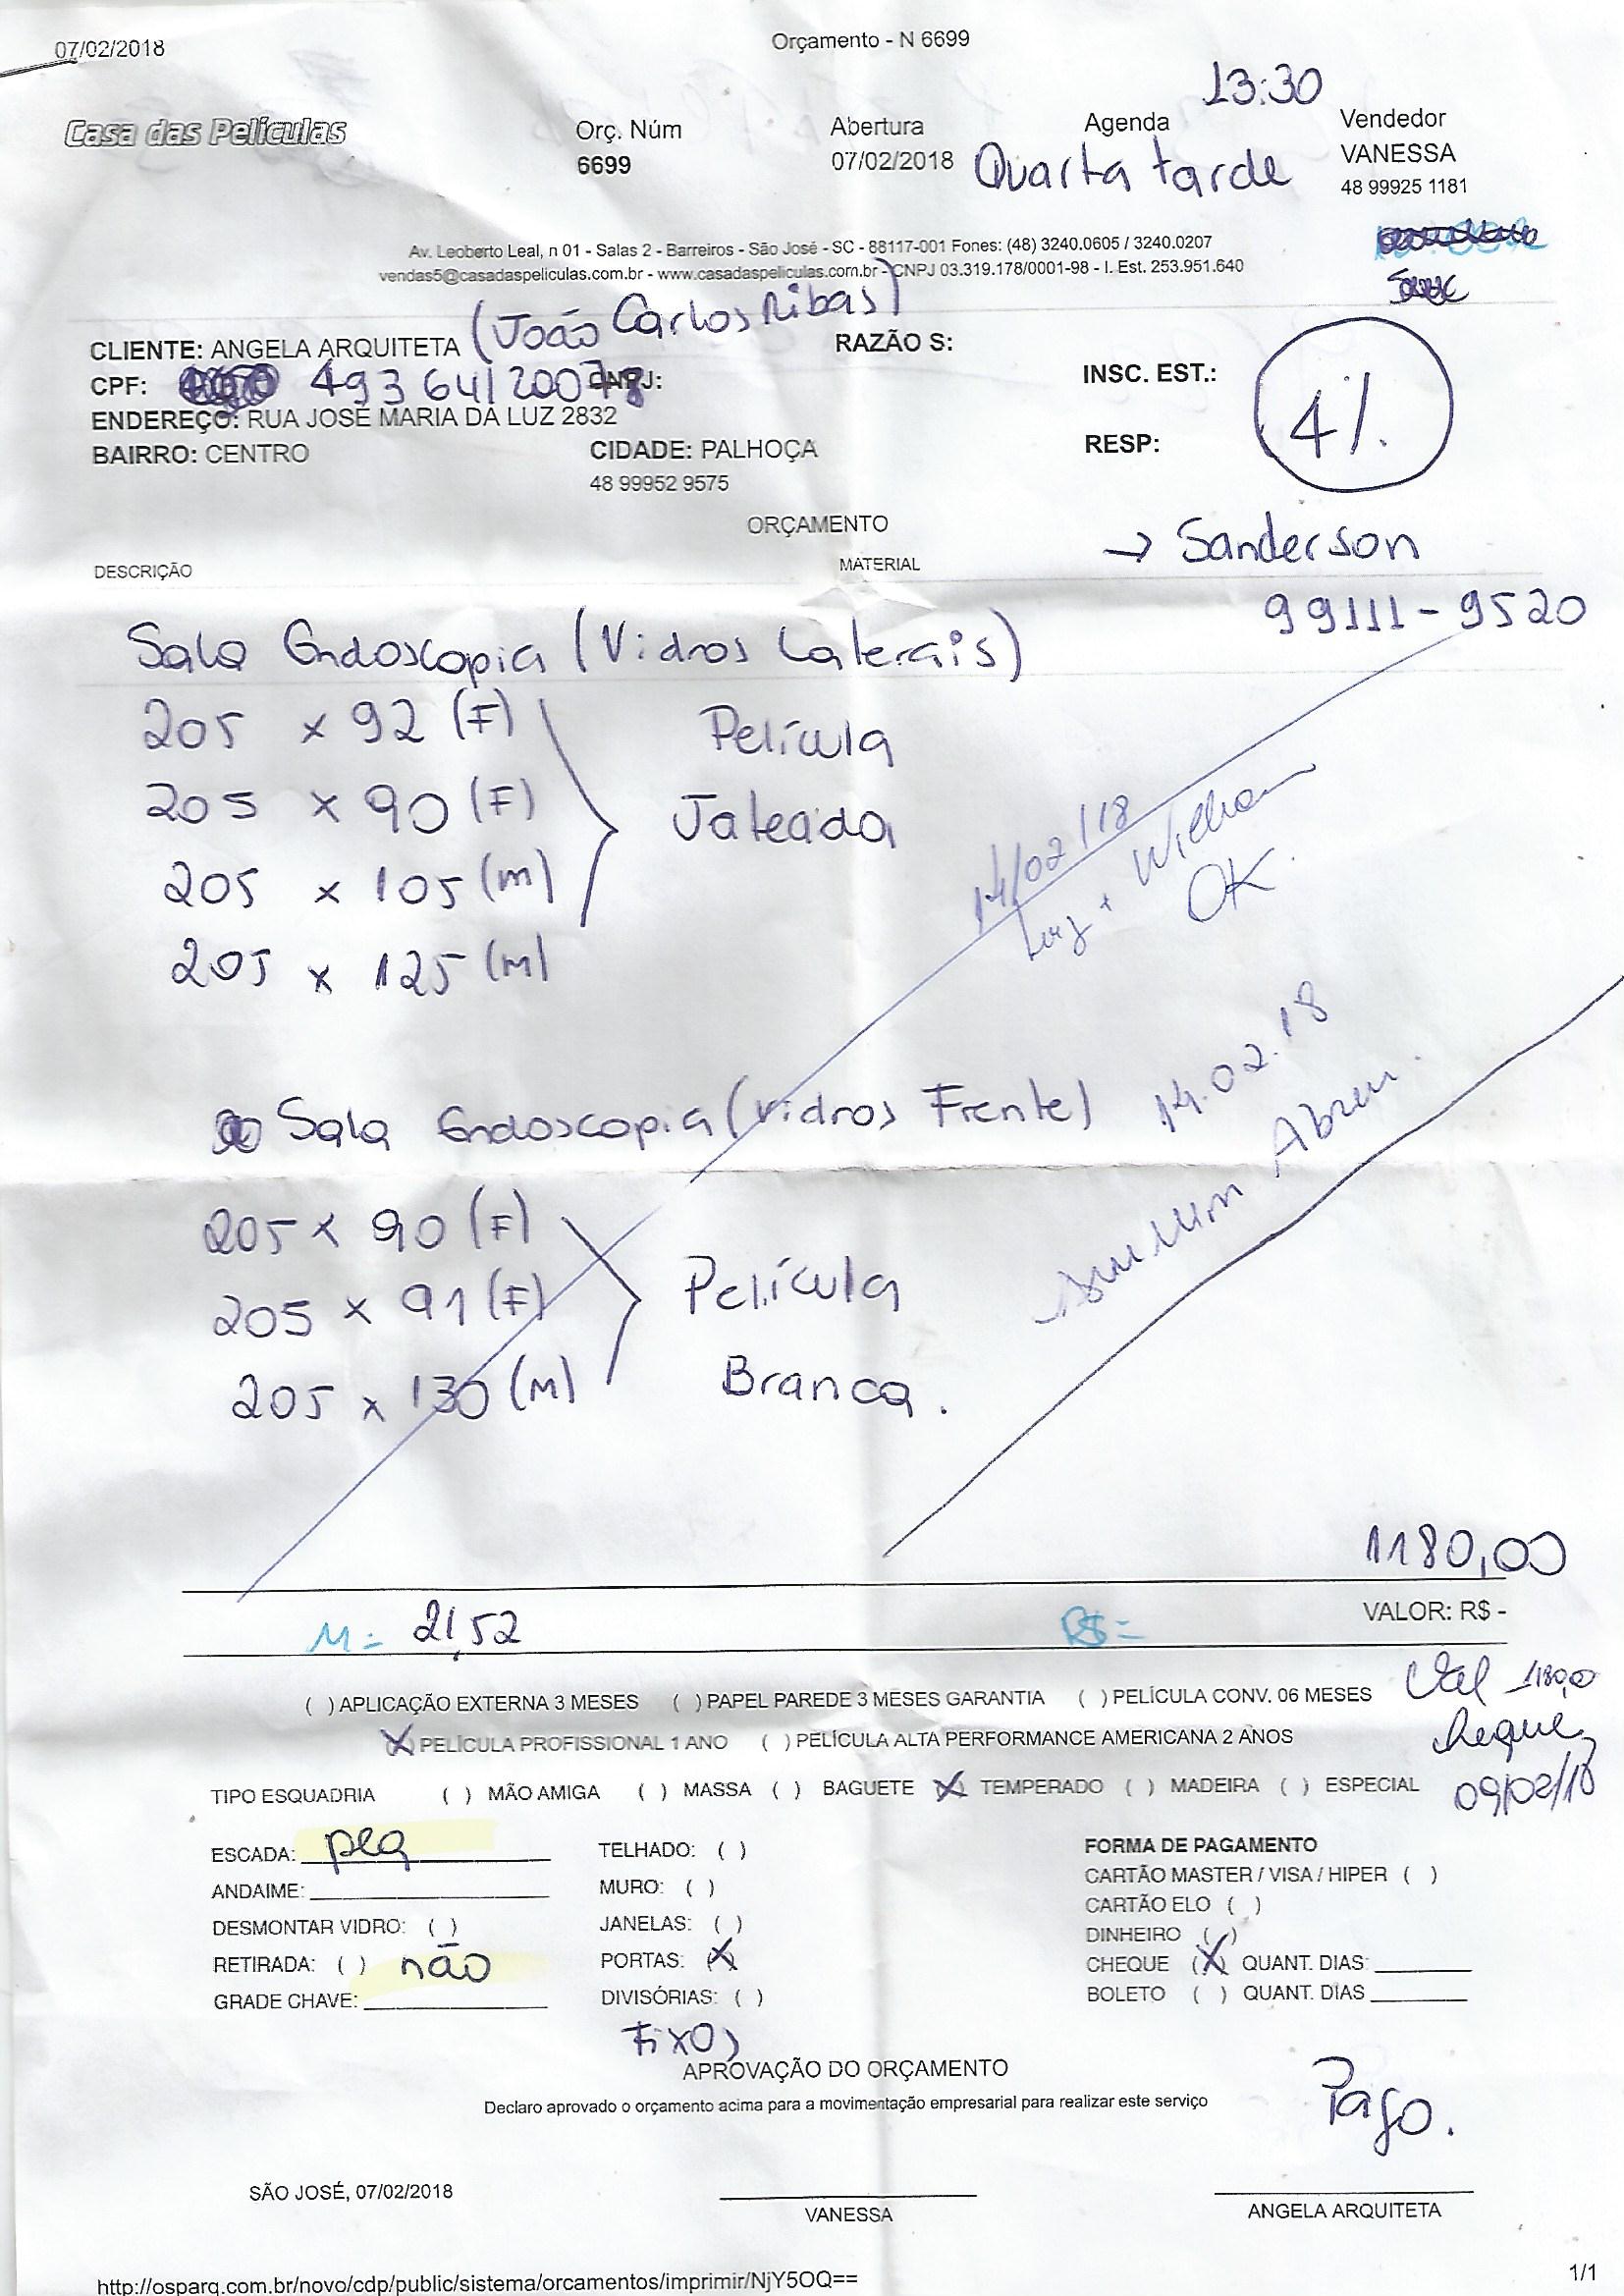 07/02/2018
Orçamento - N 6699
13:30
Casa das Películas
Orç. Núm
6699
Abertura
07/02/2018
Agenda
Quarta tarde
Vendedor
VANESSA
48 99925 1181
Av. Leoberto Leal, n 01 - Salas 2 - Barreiros - São José - SC - 88117-001 Fones: (48) 3240.0605 / 3240.0207
vendas5@casadaspeliculas.com.br - www.casadaspeliculas.com.br - CNPJ 03.319.178/0001-98 - I. Est. 253.951.640
CLIENTE: ANGELA ARQUITETA (João Carlos Ribas) RAZÃO S:
CPF: 49364120078 CNPJ:
INSC. EST.:
ENDEREÇO: RUA JOSE MARIA DA LUZ 2832
4%.
BAIRRO: CENTRO CIDADE: PALHOÇA RESP:
48 99952 9575
ORÇAMENTO
→ Sanderson
DESCRIÇÃO MATERIAL
99111-9520
Sala Endoscopia (Vidros Laterais)
205 x 92 (F) Película
205 x 90 (F) Jateada
205 x 105 (m)
205 x 125 (m)
14/02/18
Luiz + Willian
OK.
Sala Endoscopia (Vidros Frente)
14.02.18
Abreu.
205 x 90 (F)
205 x 91 (F) Película
205 x 130 (M) Branca.
1180,00
M = 21,52 R$ = VALOR: R$ -
( ) APLICAÇÃO EXTERNA 3 MESES ( ) PAPEL PAREDE 3 MESES GARANTIA ( ) PELÍCULA CONV. 06 MESES
1180,00
(X) PELÍCULA PROFISSIONAL 1 ANO ( ) PELÍCULA ALTA PERFORMANCE AMERICANA 2 ANOS
cheque
TIPO ESQUADRIA ( ) MÃO AMIGA ( ) MASSA ( ) BAGUETE (X) TEMPERADO ( ) MADEIRA ( ) ESPECIAL
09/02/18
ESCADA: peq
ANDAIME:
DESMONTAR VIDRO: ( )
RETIRADA: ( ) não
GRADE CHAVE:
TELHADO: ( )
MURO: ( )
JANELAS: ( )
PORTAS: (X)
DIVISÓRIAS: ( )
Fixos
FORMA DE PAGAMENTO
CARTÃO MASTER / VISA / HIPER ( )
CARTÃO ELO ( )
DINHEIRO ( )
CHEQUE (X) QUANT. DIAS:
BOLETO ( ) QUANT. DIAS
APROVAÇÃO DO ORÇAMENTO
Declaro aprovado o orçamento acima para a movimentação empresarial para realizar este serviço
Pago.
SÃO JOSÉ, 07/02/2018
VANESSA
ANGELA ARQUITETA
http://osparq.com.br/novo/cdp/public/sistema/orcamentos/imprimir/NjY5OQ==
1/1